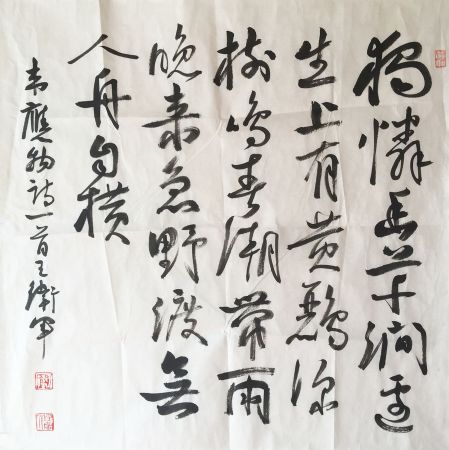 獨憐幽草澗邊
生上有黄鸝深
樹鳴春潮帶雨
晚来急野渡無
人舟自横
韋應物詩一首王衛軍